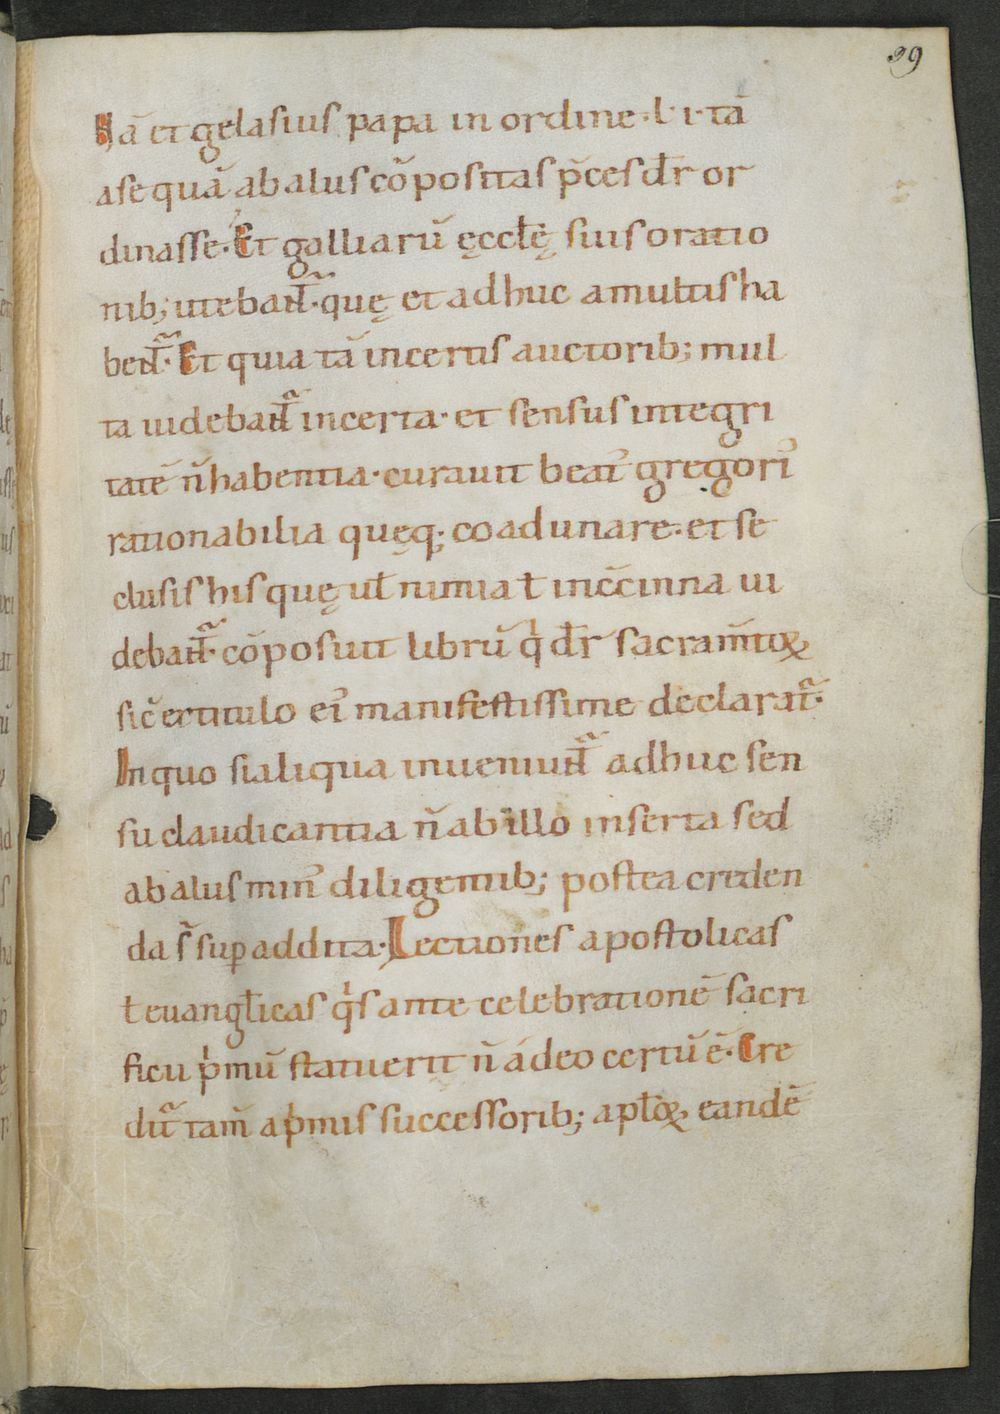 99
Nā et gelasius papa in ordine·l·i·tā
ase quā ab aliis cōpositas p̄ces dr̄ or
dinasse· Et galliarū ęccłę suis oratio
nib; utebant᷑· quę et adhuc a multis ha
bent᷑· Et quia tā incertis auctorib; mul
ta uidebant᷑ incerta· et sensus integri
tatē n̄ habentia· curauit beat᷒ gregori᷒
rationabilia quęq; coadunare· et se
clusis his quę uł nimia ł incc̄inna ui
debant᷑· cōposuit librū qͥ dr̄ sacram̄toꝝ
sic̄ ex titulo ei᷒ manifestissime declarat᷑·
In quo si aliqua inueniunt᷑ adhuc sen
su claudicantia n̄ ab illo inserta sed
ab aliis min᷒ diligentib; postea creden
da s̄t suꝑaddita· Lectiones apostolicas
ł euangłicas qͥs ante celebrationē sacri
ficii pͥmū statuerit n̄ adeo certū ē· Cre
dit᷑ tam̄ a pͥmis successorib; apłoꝝ eandē